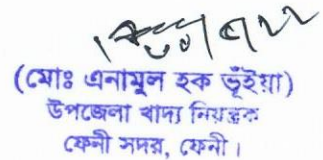 (মোঃ এনামুল হক ভূঁইয়া)
উপজেলা খাদ্য নিয়ন্ত্রক
ফেনী সদর, ফেনী।